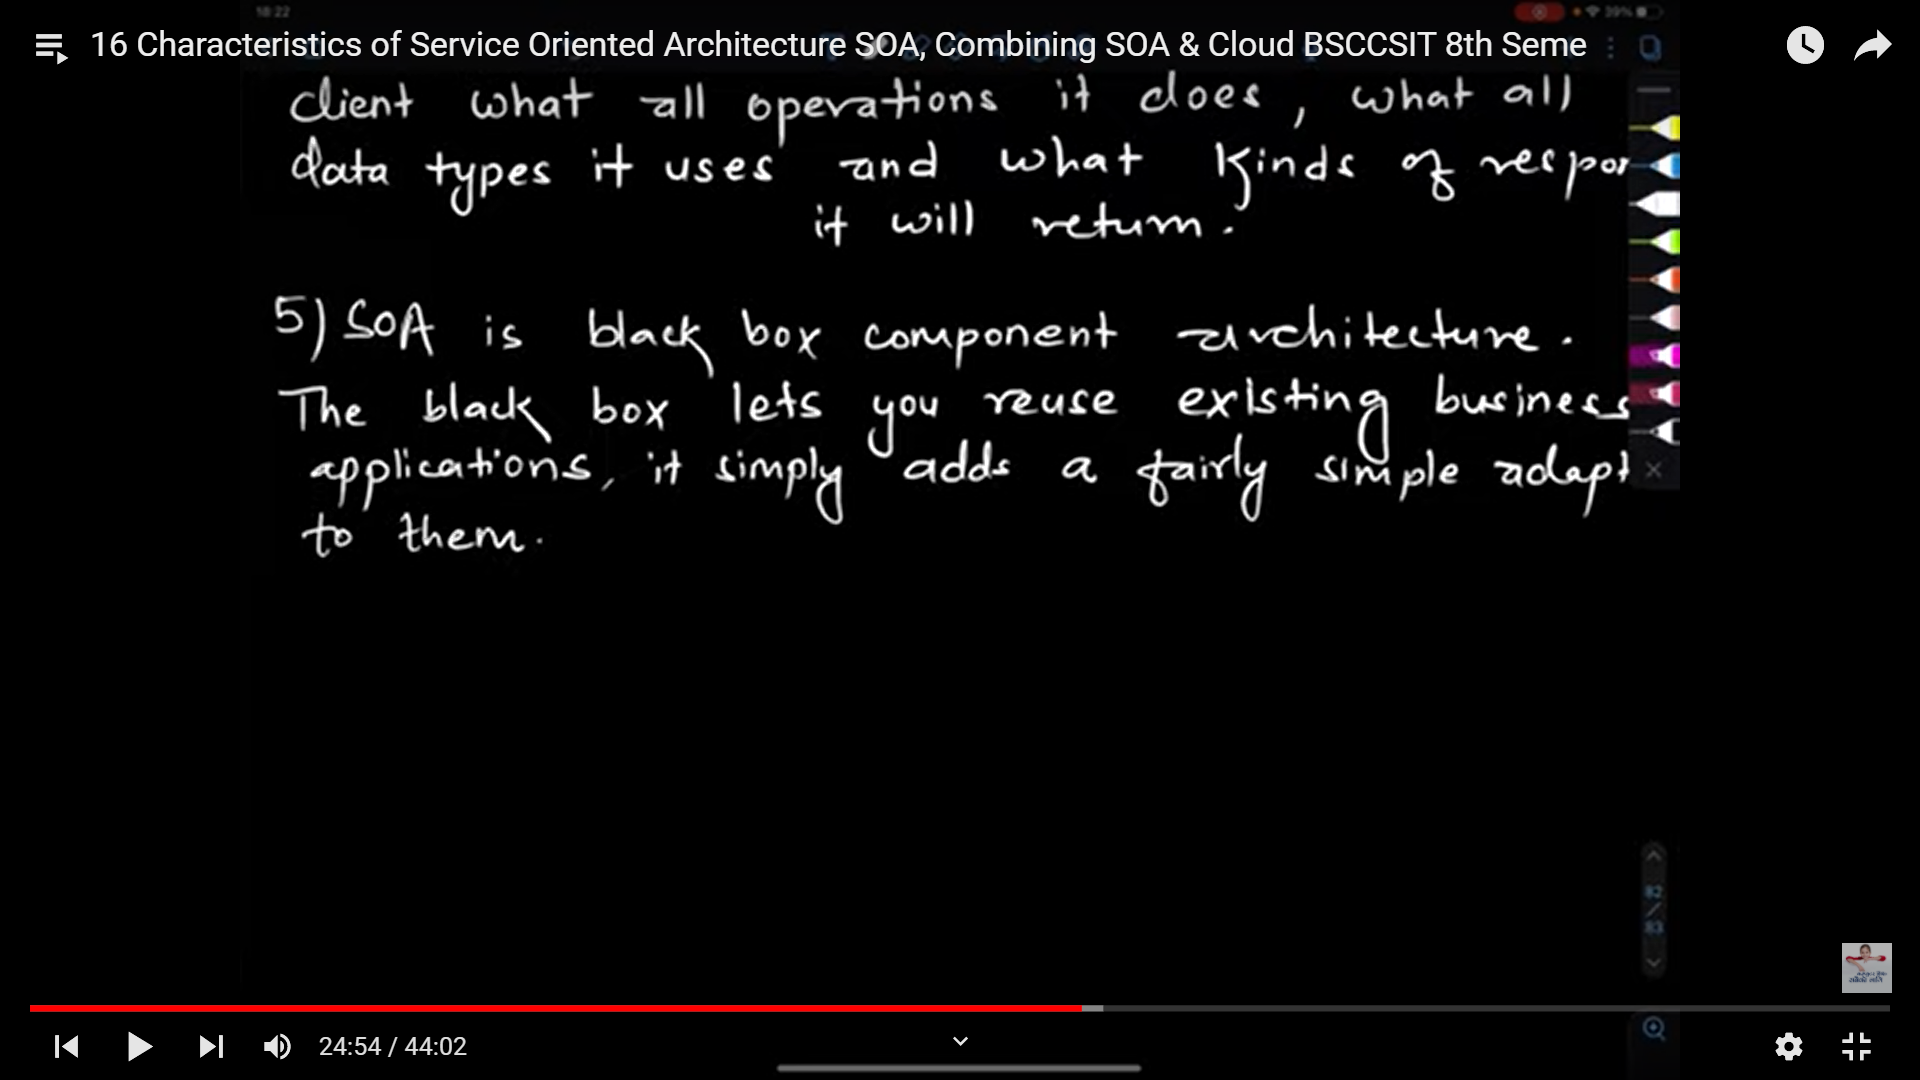 18:22
39%
16 Characteristics of Service Oriented Architecture SOA, Combining SOA & Cloud BSCCSIT 8th Seme
client what all operations it does, what all
data types it uses and what kinds of respon
it will return.
5) SOA is black box component architecture.
The black box lets you reuse existing business
applications, it simply adds a fairly simple adapt
to them.
82
/
83
24:54 / 44:02